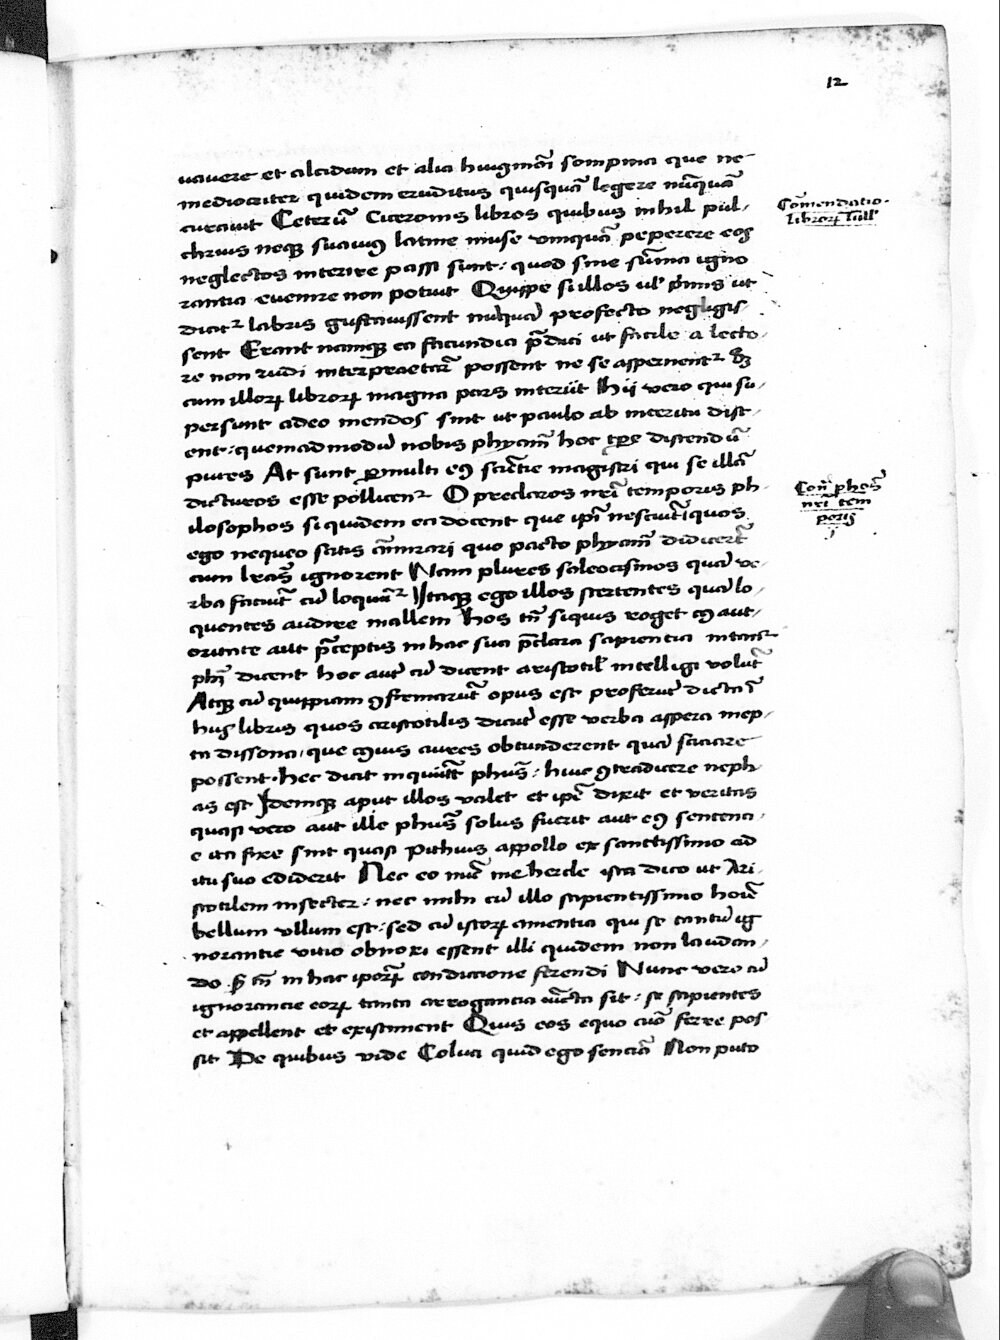 12
uavere et alcidum et alia huiusmõi sompnia que ne-
mediocriter quidem eruditus quisquã legere nũquã
curauit Ceterũ Ciceronis libros quibus nihil pul-
chrius neqꝫ suauius latine muse vmquã peperere eos
neglectos interire passi sunt: quod sine sũma igno
rantia euenire non potuit Quippe si illos ul' p̃mis ut
dicit᷑ labris gustauissent nũquã profecto negligis-
sent Erant namqꝫ ea facundia p̃diti ut facile a lecto-
re non rudi interpraetar̃ possent ne se aspernent᷑ Sꝫ
cum illoꝝ libroꝝ magna pars interiit Hii vero qui su-
persunt adeo mendosi sint ut paulo ab interitu dist-
ent: quemadmodũ nobis phyam̃ hoc tꝑe discendũ
putes At sunt ꝑmulti eꝰ sciẽtie magistri qui se illã
docturos esse pollicent᷑ O preclaros nr̃i temporis ph
ilosophos siquidem ea docent que ip̃i nesciut̃ quos
ego nequeo satis ãmirari quo pacto phyam̃ didicerĩt
cum lr̃as ignorent Nam plures soleocismos quã ve-
rba faciũt cũ loquũt᷑ Itaqꝫ ego illos stertentes quã lo-
quentes audire mallem Hos tñ siquis roget cuiꝰ aut-
oritate aut p̃ceptis in hac sua p̃clara sapientia nitant᷑
phĩ dicent hoc autẽ cũ dicent aristotil' intelligi volũt
Atqꝫ cũ quippiam ꝯfirmarũt opus est proferũt dicta ĩ
hijs libris quos aristotilis dicũt esse verba aspera inep-
ta dissona, que cuiusuis aures obtunderent quã saciare
possent. hec dicit inquiũt phũs: huic ꝯtradicere neph-
as est Idemqꝫ aput illos valet et ip̃e dixit et veritas
quasi vero aut ille phũs solus fuerit aut eꝰ sentenci-
e ita fixe sint quasi Pithius appollo ex sanctissimo ad
itu suo ediderit Nec eo nũc me hercle ista dico ut Ari-
stotilem insecter: nec mihi cũ illo sapientissimo hoĩe
bellum vllum est: sed cũ istoꝝ amentia qui se tantũ ig
norantie vitio obnoxi essent illi quidem non laudan-
do. s̃ tñ in hac ip̃oꝝ condiccione ferendi Nunc vero cũ
ignorancie eoꝝ tanta arrogancia iũcta sit: se sapientes
et appellent et existiment Quis eos equo aĩo ferre pos
sit De quibus vide Coluci quid ego senciã Non puto
Cõmendatio-
libroꝝ Tull'
Coñ phos̃
nr̃i tem
poris